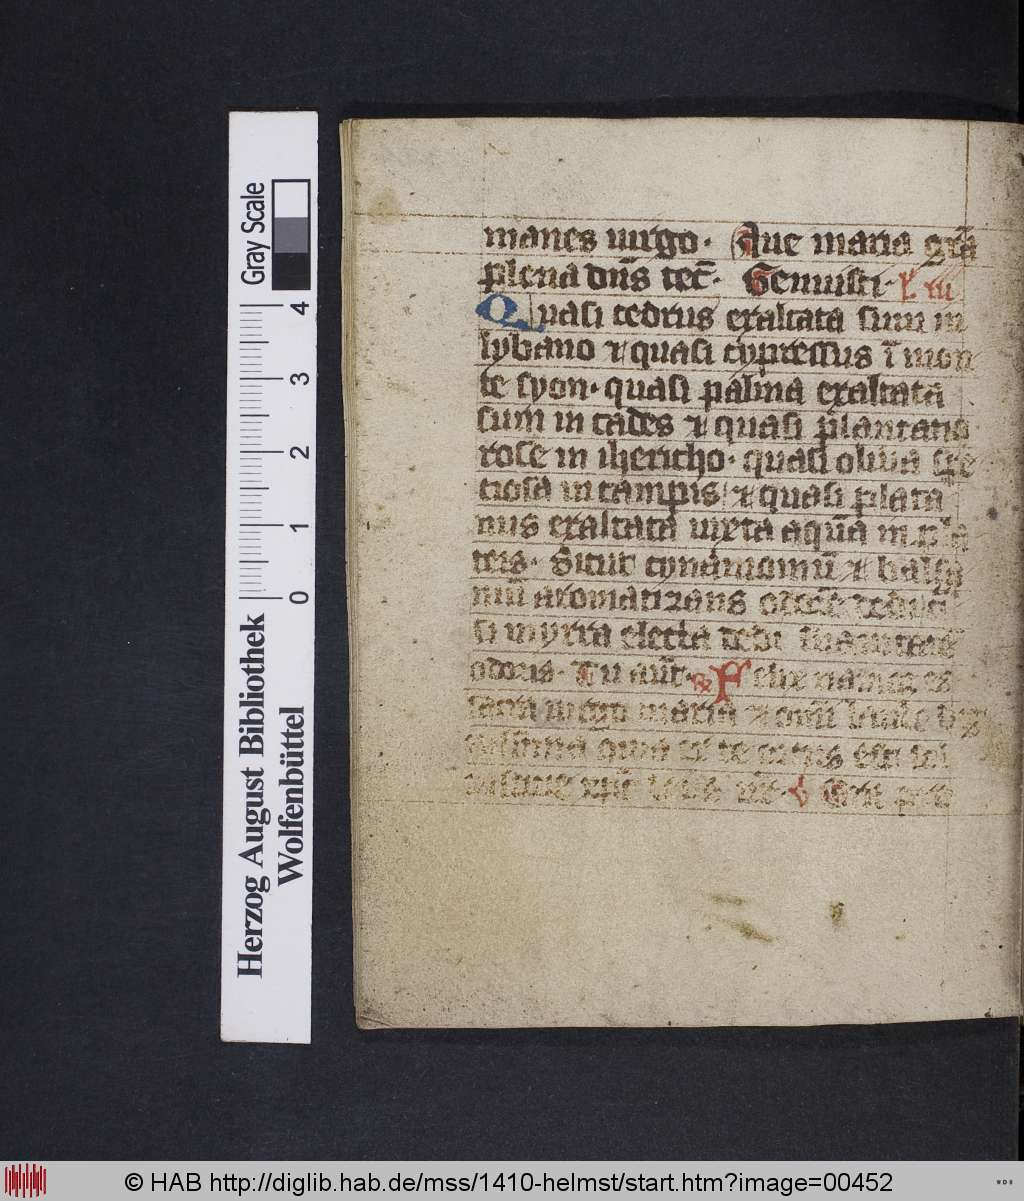 manes uirgo. Aue maria gr̄a
plena dn̄s tec̄. Genuisti. l iii
Quasi cedrus exaltata sum in
lybano ⁊ quasi cypressus ī mon
te syon. quasi palma exaltata
sum in cades ⁊ quasi plantatio
rose in ihericho. quasi oliua spe
ciosa in campis ⁊ quasi plata
nus exaltata iuxta aquā in pla
teis. Sicut cynamomū ⁊ balsa
mū aromatizans odorē dedi
si myrra electa dedi suauitatē
odoris. Tu aūt. ℟ Felix namqꝫ es
sacra uirgo maria ⁊ om̄i laude
quia ex te ortus est sol
Gray Scale
4
3
2
1
0
Herzog August Bibliothek
Wolfenbüttel
© HAB http://diglib.hab.de/mss/1410-helmst/start.htm?image=00452